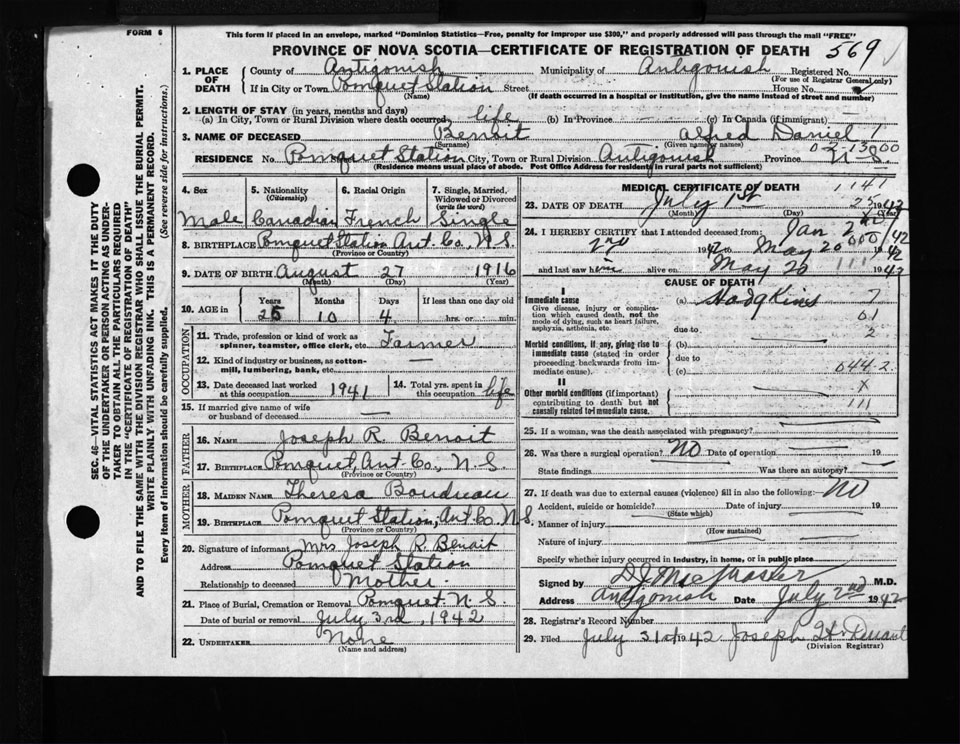 FORM 6
This form if placed in an envelope, marked "Dominion Statistics—Free, penalty for improper use $300," and properly addressed will pass through the mail "FREE"
PROVINCE OF NOVA SCOTIA—CERTIFICATE OF REGISTRATION OF DEATH
569
SEC. 46—VITAL STATISTICS ACT MAKES IT THE DUTY
OF THE UNDERTAKER OR PERSON ACTING AS UNDER-
TAKER TO OBTAIN ALL THE PARTICULARS REQUIRED
IN THE "CERTIFICATE OF REGISTRATION OF DEATH"
AND TO FILE THE SAME WITH THE DIVISION REGISTRAR WHO SHALL ISSUE THE BURIAL PERMIT.
WRITE PLAINLY WITH UNFADING INK. THIS IS A PERMANENT RECORD.
Every item of information should be carefully supplied. (See reverse side for instructions.)
1. PLACE OF DEATH
County of Antigonish Municipality of Antigonish Registered No.
(For use of Registrar General only)
If in City or Town Pomquet Station Street House No.
(Name) (If death occurred in a hospital or institution, give the name instead of street and number)
2. LENGTH OF STAY (in years, months and days)
(a) In City, Town or Rural Division where death occurred life (b) In Province — (c) In Canada (if immigrant) —
3. NAME OF DECEASED Benoit Alfred Daniel 1
(Surname) (Given name or names)
02-13000
RESIDENCE No. Pomquet Station City, Town or Rural Division Antigonish Province N.S.
(Residence means usual place of abode. Post Office Address for residents in rural parts not sufficient)
4. Sex
Male
5. Nationality (Citizenship)
Canadian
6. Racial Origin
French
7. Single, Married, Widowed or Divorced (write the word)
Single
8. BIRTHPLACE Pomquet Station Ant. Co., N.S.
(Province or Country)
9. DATE OF BIRTH August 27 1916
(Month) (Day) (Year)
10. AGE
Years Months Days If less than one day old
25 10 4 hrs. or min.
OCCUPATION
11. Trade, profession or kind of work as spinner, teamster, office clerk, etc. Farmer
12. Kind of industry or business, as cotton-mill, lumbering, bank, etc.
13. Date deceased last worked at this occupation 1941
14. Total yrs. spent in this occupation life
15. If married give name of wife or husband of deceased —
FATHER
16. NAME Joseph R. Benoit
17. BIRTHPLACE Pomquet, Ant. Co., N.S.
(Province or Country)
MOTHER
18. MAIDEN NAME Theresa Boudreau
19. BIRTHPLACE Pomquet Station, Ant. Co. N.S.
(Province or Country)
20. Signature of informant Mrs Joseph R. Benoit
Address Pomquet Station
Relationship to deceased Mother.
21. Place of Burial, Cremation or Removal Pomquet N.S
Date of burial or removal July 3rd, 1942
22. UNDERTAKER None
(Name and address)
MEDICAL CERTIFICATE OF DEATH
1141
23. DATE OF DEATH July 1st 1942
(Month) (Day) (Year)
24. I HEREBY CERTIFY that I attended deceased from Jan 2
2nd 1942 to May 20 1942
and last saw him alive on May 20 1942
CAUSE OF DEATH
I
Immediate cause
Give disease, injury or complication which caused death, not the mode of dying, such as heart failure, asphyxia, asthenia, etc.
(a) Hodgkins 7
01
due to 2
Morbid conditions, if any, giving rise to immediate cause (stated in order proceeding backwards from immediate cause).
(b)
due to
(c) 044-2
II
x
Other morbid conditions (if important) contributing to death but not causally related to immediate cause.
111
25. If a woman, was the death associated with pregnancy?
26. Was there a surgical operation? NO Date of operation 19
State findings Was there an autopsy?
27. If death was due to external causes (violence) fill in also the following: NO
Accident, suicide or homicide? Date of injury 19
(State which)
Manner of injury
(How sustained)
Nature of injury
Specify whether injury occurred in industry, in home, or in public place
Signed by M.D.
Address Antigonish Date July 2nd 1942
28. Registrar's Record Number
29. Filed July 31st 1942 Joseph H.
(Division Registrar)